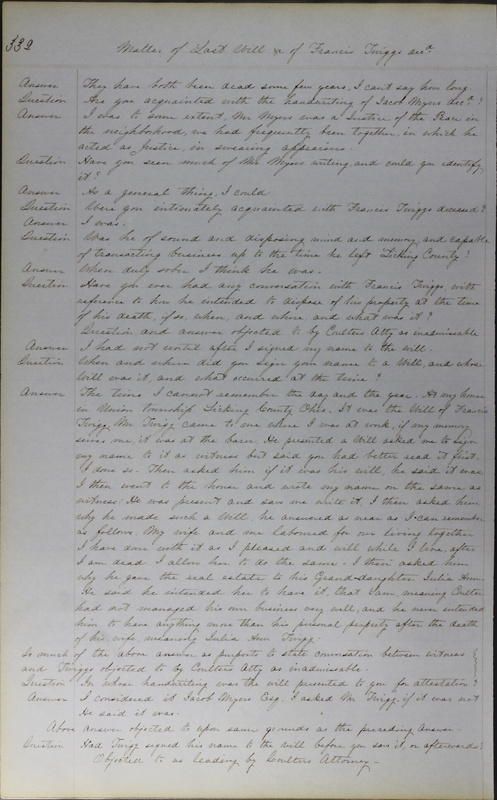 332
Matter of Last Will &c of Francis Twiggs decd.
Answer They have both been dead some few years, I cant say how long.
Question Are you acquainted with the handwriting of Jacob Myers decd.?
Answer I was to some extent, Mr Myers was a Justice of the Peace in
the neighborhood, we had frequently been together, in which he
acted as Justice, in swearing appraisers.
Question Have you seen much of Mr Myers writing, and could you identify
it?
Answer As a general thing, I could
Question Were you intimately acquainted with Francis Twiggs deceased?
Answer I was.
Question Was he of sound and disposing mind and memory, and capable
of transacting business up to the time he left Licking County?
Answer When duly sober I think he was.
Question Have you ever had any conversation with Francis Twiggs, with
reference to how he intended to dispose of his property at the time
of his death, if so, when, and where and what was it?
Question and answer objected to by Coulters Atty as inadmissable
Answer I had not until after I signed my name to the will.
Question When and where did you sign your name to a Will, and whose
Will was it, and what occurred at the time?
Answer The time I cannot remember the day and the year. At my house
in Union township Licking County Ohio. It was the Will of Francis
Twigg. Mr Twigg came to me where I was at work, if my memory
serves me, it was at the barn. He presented a Will asked me to sign
my name to it as witness but said you had better read it first.
I done so. Then asked him if it was his will, he said it was
I then went to the house and wrote my name on the same as
witness. He was present and saw me write it. I then asked him
why he made such a Will, he answered as near as I can remember
as follows. My wife and me laboured for our living together
I have done with it as I pleased and will while I live, after
I am dead I allow her to do the same. I then asked him
why he gave the real estate to his Grand-daughter Julia Ann.
He said he intended her to have it, that meaning Coulter
had not managed his own business very well, and he never intended
him to have anything more than his personal property after the death
of his wife, meaning Julia Ann Twigg.
So much of the above answer as purports to state conversation between witness
and Twiggs objected to by Coulters Atty as inadmissable.
Question In whose handwriting was the will presented to you for attestation?
Answer I considered it Jacob Myers Esq. I asked Mr Twigg if it was not
He said it was.
Above answer objected to upon same grounds as the preceding Answer.
Question Had Twigg signed his name to the will before you saw it, or afterwards?
Objected to as leading by Coulters Attorney